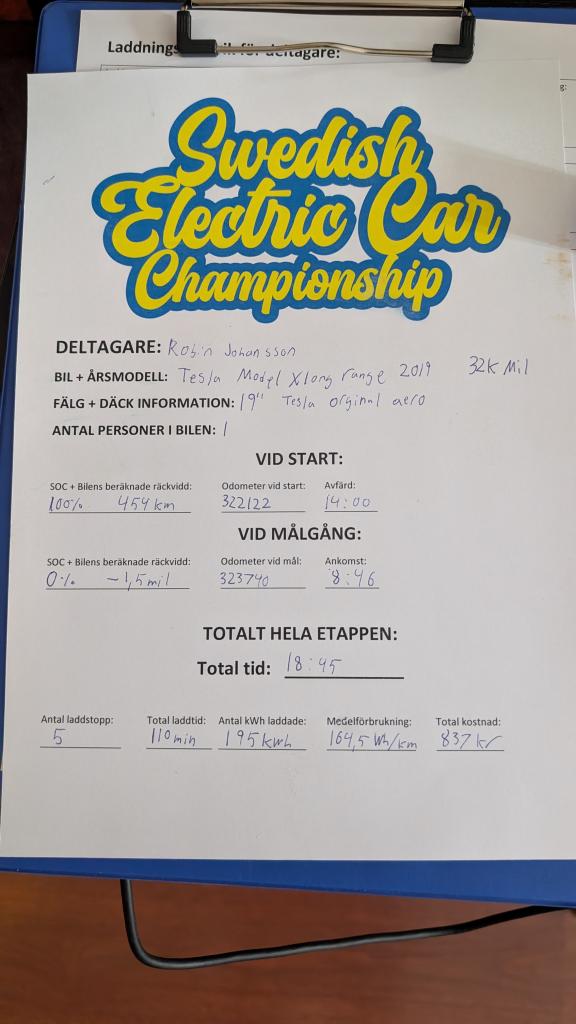 Laddnings
för deltagare:
Swedish
Electric Car
Championship
DELTAGARE: Robin Johansson
BIL + ÅRSMODELL: Tesla Model X long range 2019 32K Mil
FÄLG + DÄCK INFORMATION: 19" Tesla orginal aero
ANTAL PERSONER I BILEN: 1
VID START:
SOC + Bilens beräknade räckvidd: Odometer vid start: Avfärd:
100% 454 km 322122 14:00
VID MÅLGÅNG:
SOC + Bilens beräknade räckvidd: Odometer vid mål: Ankomst:
0% -1,5mil 323740 8:46
TOTALT HELA ETAPPEN:
Total tid: 18:45
Antal laddstopp: Total laddtid: Antal kWh laddade: Medelförbrukning: Total kostnad:
5 110 min 195 kwh 164,5 Wh/km 837 kr